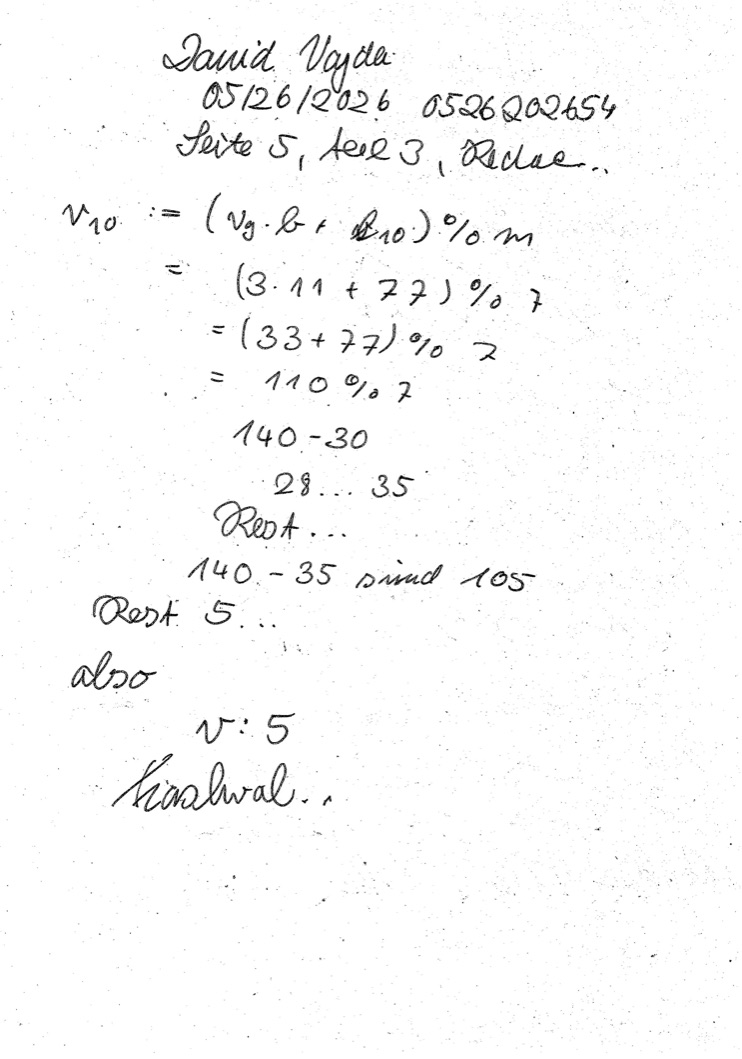 David Vajda
05/26/2026 0526202654
Seite 5, Teil 3,
v10 := (v9 · b + 10) % m
= (3 · 11 + 77) % 7
= (33 + 77) % 7
= 110 % 7
140 - 30
28 ... 35
Rest ...
140 - 35 sind 105
Rest 5 ...
also
v: 5